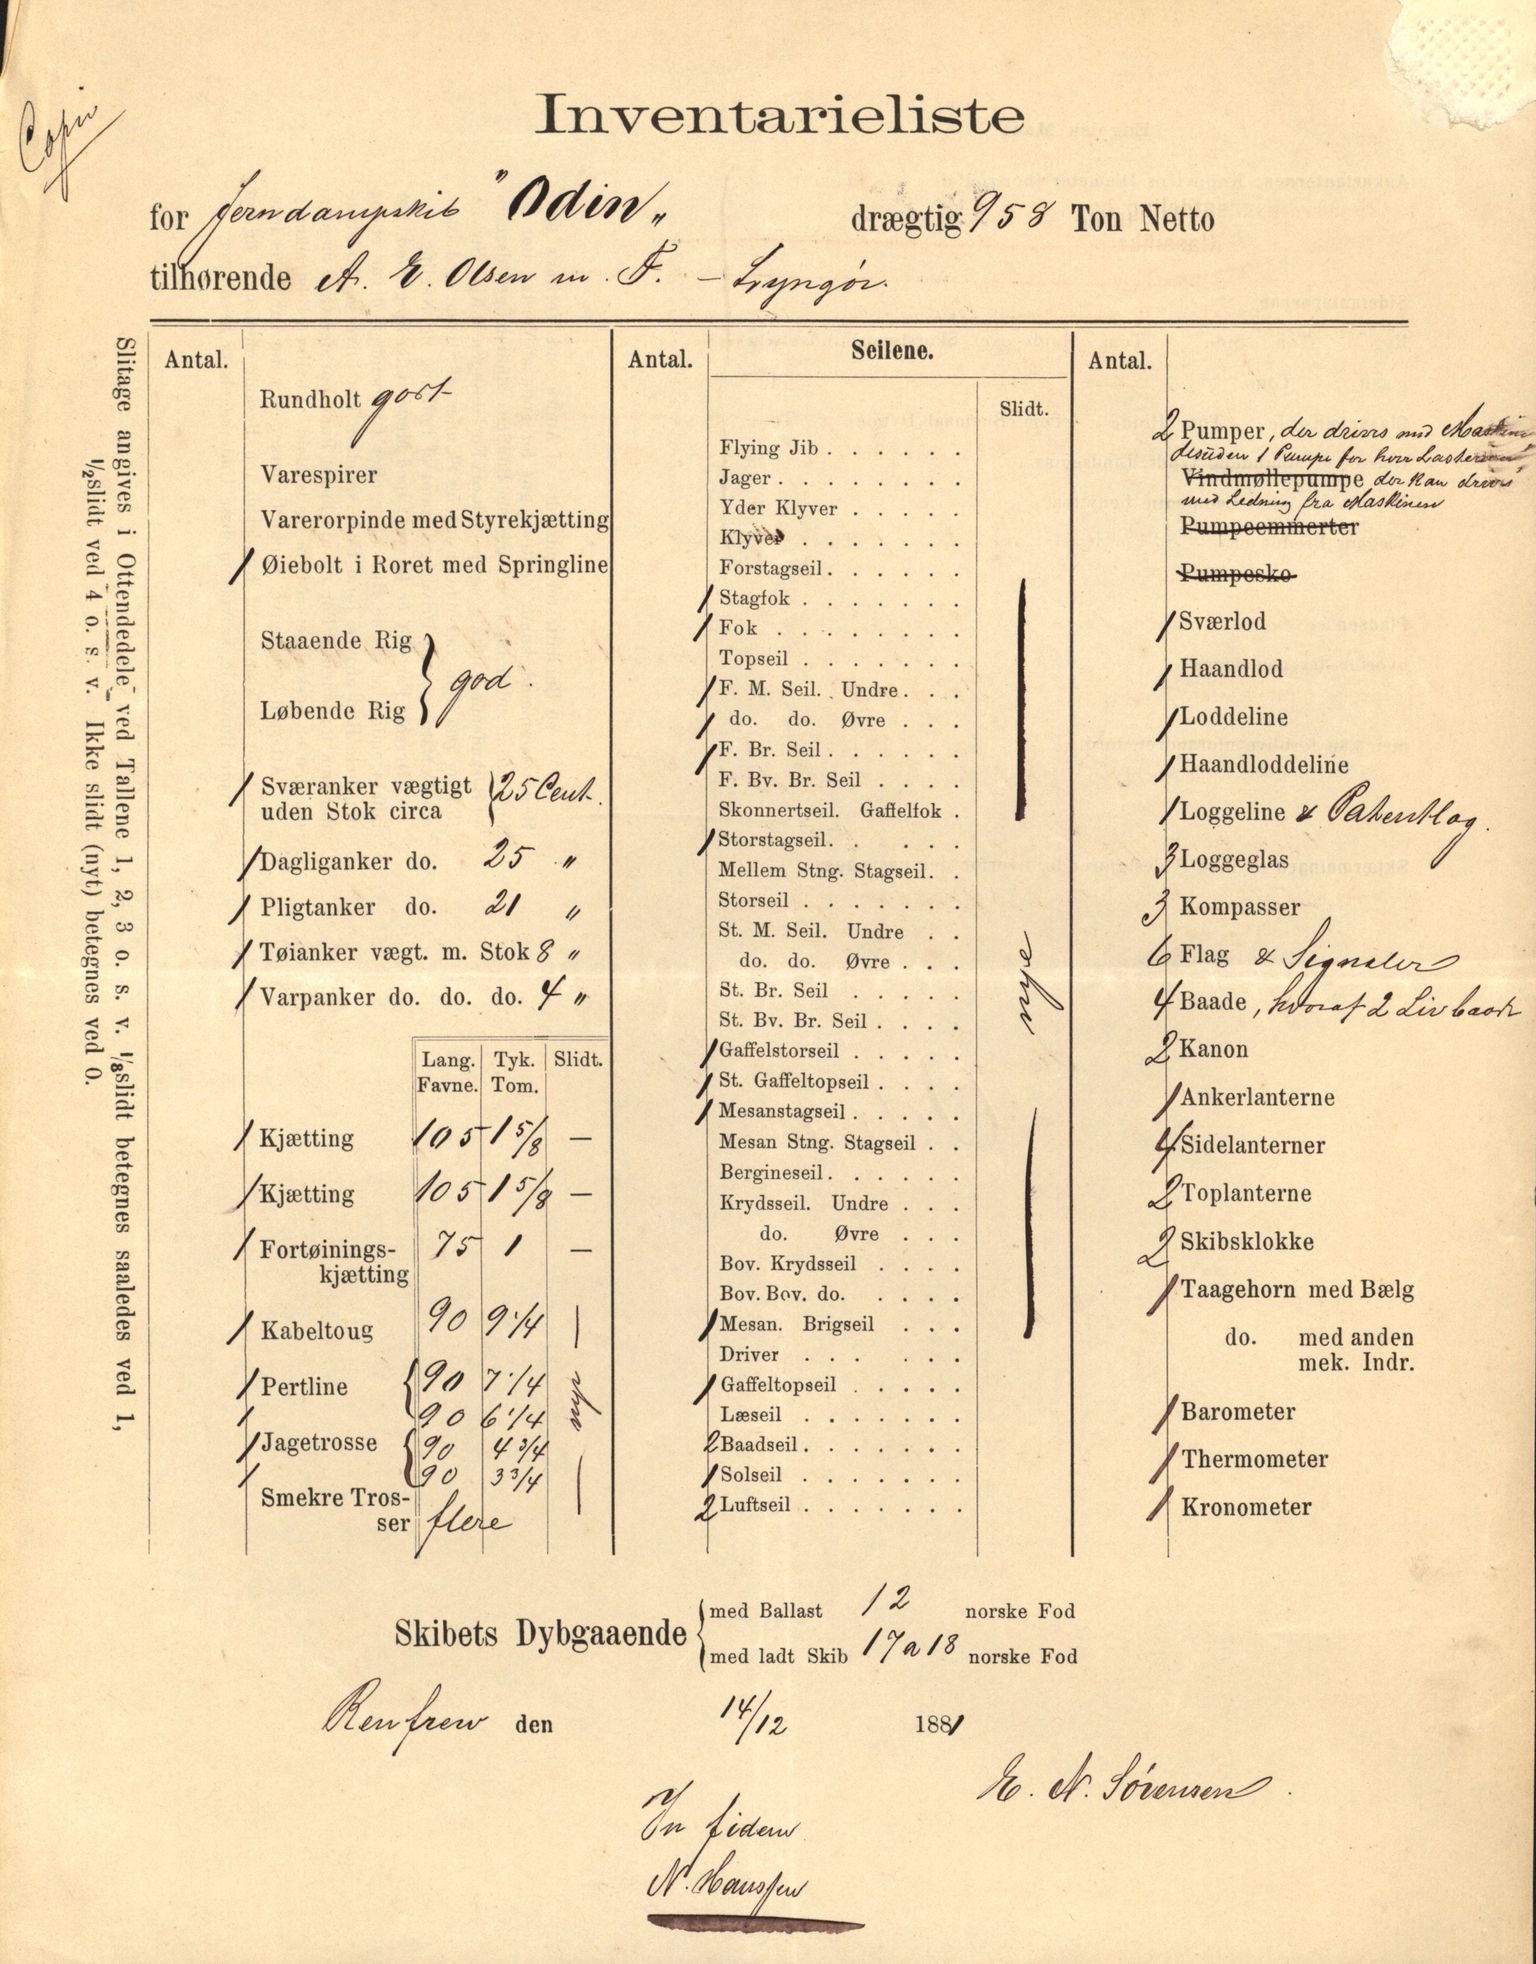 Copi
Inventarieliste
for Jerndampskib "Odin„ drægtig 958 Ton Netto
tilhørende A. E. Olsen m. F. – Lyngør.
Slitage angives i Ottendedele ved Tallene 1, 2, 3 o. s. v. ⅛slidt betegnes saaledes ved 1,
½slidt ved 4 o. s. v. Ikke slidt (nyt) betegnes ved 0.
Antal.
Rundholt godt
Varespirer
Varerorpinde med Styrekjætting
1 Øiebolt i Roret med Springline
Staaende Rig
god.
Løbende Rig
1 Sværanker vægtigt 25 Cent.
uden Stok circa
1 Dagliganker do. 25 „
1 Pligtanker do. 21 „
1 Tøianker vægt. m. Stok 8 „
1 Varpanker do. do. do. 4 „
Lang. Tyk. Slidt.
Favne. Tom.
1 Kjætting 105 1 5/8 —
1 Kjætting 105 1 5/8 —
1 Fortøinings- 75 1 —
kjætting
1 Kabeltoug 90 9 1/4
1 Pertline 90 7 1/4
1 90 6 1/4
nye
1 Jagetrosse 90 4 3/4
1 90 3 3/4
Smekre Tros-
ser flere
Antal. Seilene.
Slidt.
Flying Jib . . . . . .
Jager . . . . . . . .
Yder Klyver . . . . .
Klyver . . . . . . .
Forstagseil . . . . . .
1 Stagfok . . . . . . .
1 Fok . . . . . . . .
Topseil . . . . . . .
1 F. M. Seil. Undre . . .
1 do. do. Øvre . . .
1 F. Br. Seil . . . . . .
F. Bv. Br. Seil . . . .
Skonnertseil. Gaffelfok .
1 Storstagseil. . . . .
Mellem Stng. Stagseil. .
Storseil . . . . . . .
St. M. Seil. Undre . .
do. do. Øvre . . .
St. Br. Seil . . . . .
St. Bv. Br. Seil . . . .
nye
1 Gaffelstorseil . . . . .
1 St. Gaffeltopseil . . . .
1 Mesanstagseil . . . . .
Mesan Stng. Stagseil . .
Bergineseil . . . . . .
Krydsseil. Undre . . .
do. Øvre . . .
Bov. Krydsseil . . . .
Bov. Bov. do. . . . .
1 Mesan. Brigseil . . .
Driver . . . . . .
1 Gaffeltopseil . . . . .
Læseil . . . . . . .
2 Baadseil . . . . . . .
1 Solseil . . . . . . .
2 Luftseil . . . . . . .
Antal.
2 Pumper, der drives med Maskin
desuden 1 Pumpe for hver
Vindmøllepumpe der kan drives
med Ledning fra Maskinen
Pumpeemmerter
Pumpesko
1 Sværlod
1 Haandlod
1 Loddeline
1 Haandloddeline
1 Loggeline & Patentlog.
3 Loggeglas
3 Kompasser
6 Flag & Signaler
4 Baade, hvoraf 2 Livbaade
2 Kanon
1 Ankerlanterne
4 Sidelanterner
2 Toplanterne
2 Skibsklokke
1 Taagehorn med Bælg
do. med anden
mek. Indr.
1 Barometer
1 Thermometer
1 Kronometer
Skibets Dybgaaende
med Ballast 12 norske Fod
med ladt Skib 17 a 18 norske Fod
Renfrew den 14/12 1881
E. N. Sörensen.
In fidem
N. Hanssen